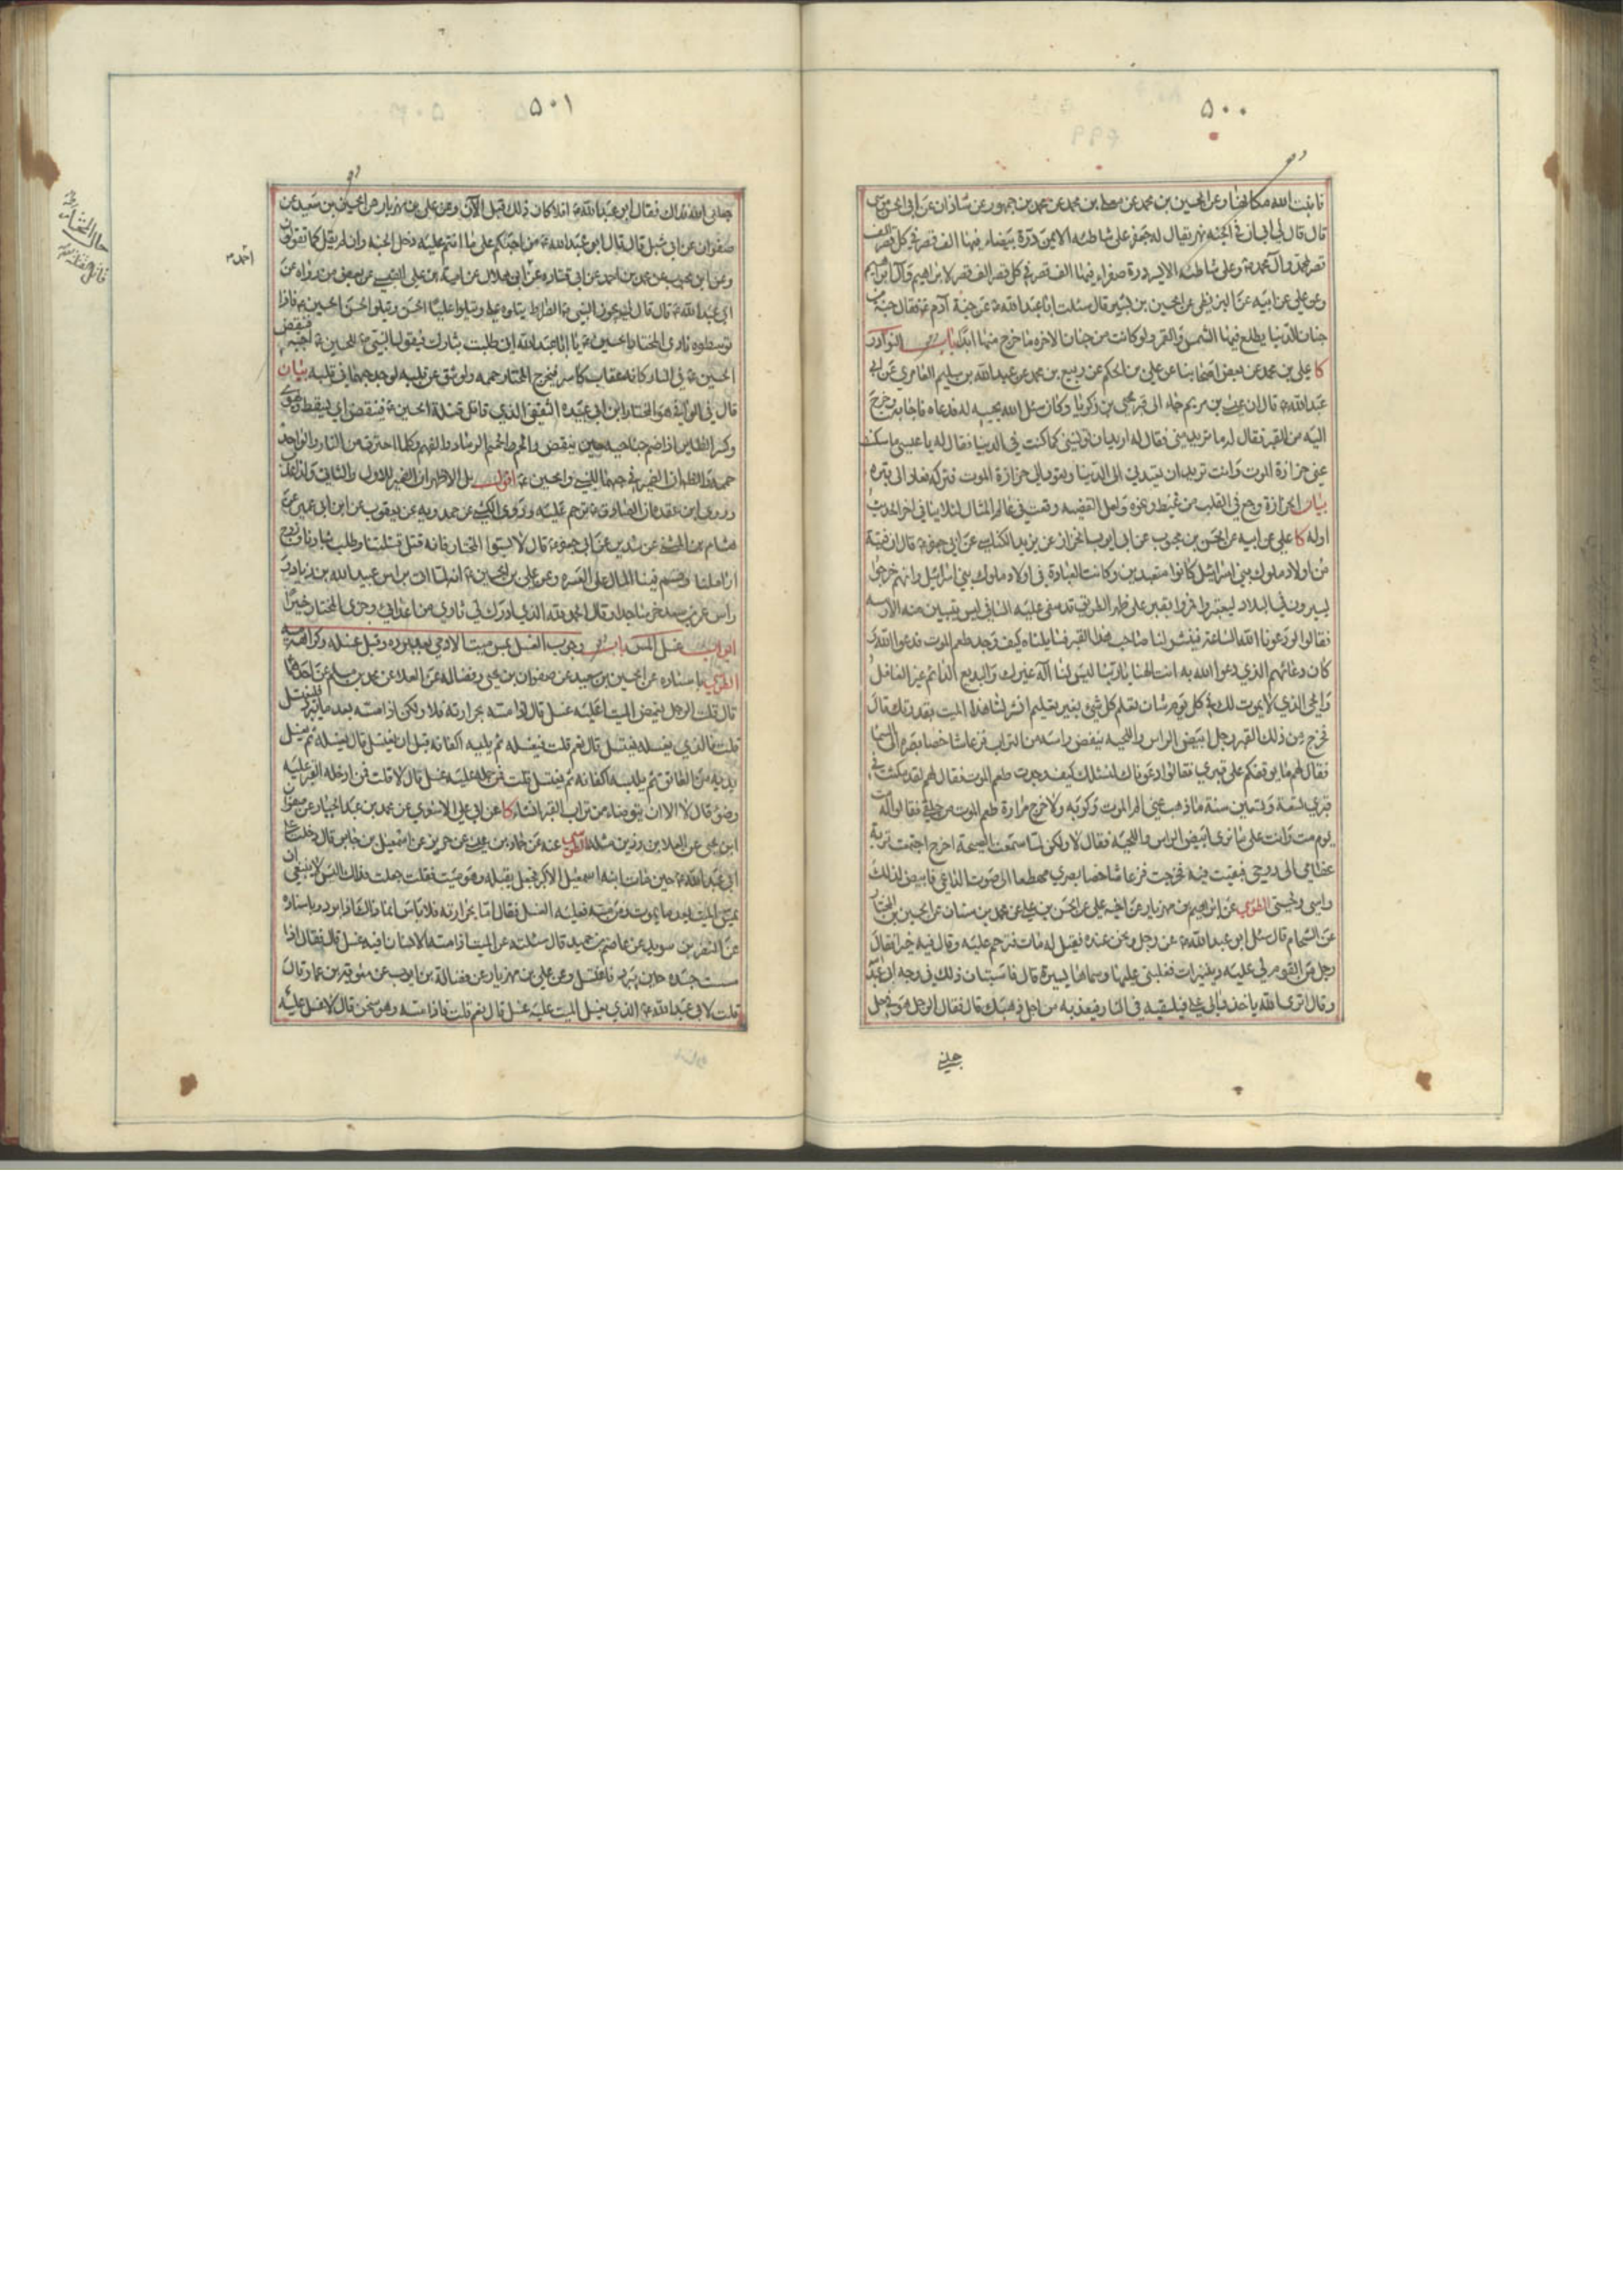 ٥٠٠
نابت الله مكانها وعن الحسين بن محمد عن معلى بن محمد عن محمد بن جمهور عن شاذان عن ابي الحسن موسى
قال قال لي ابي ان في الجنة نهر يقال له جعفر على شاطئه الايمن درة بيضاء فيها الف قصر في كل قصر الف
قصر لمحمد وآل محمد ص وعلى شاطئه الايسر درة صفراء فيها الف قصر في كل قصر الف قصر لابراهيم وآل ابراهيم
وعن علي عن ابيه عن البزنطي عن الحسين بن بشير قال سئلت ابا عبد الله ع عن جنة آدم ع فقال جنة من
جنان الدنيا يطلع فيها الشمس والقمر ولو كانت من جنان الاخرة ما خرج منها ابدا باب النوادر
كا علي بن محمد عن بعض اصحابنا عن علي بن الحكم عن ربيع بن محمد عن عبد الله بن سليم العامري عن ابي
عبد الله ع قال ان عيسى بن مريم جاء الى قبر يحيى بن زكريا وكان سئل الله يحييه له فدعاه فاجابه وخرج
اليه من القبر فقال له ما تريد مني فقال له اريد ان تونسني كما كنت في الدنيا فقال له يا عيسى ما سكنت
عني حزازة الموت وانت تريد ان تعيدني الى الدنيا وتعود الي حزازة الموت فتركه فعاد الى قبره
بيان الحزازة وجع في القلب من غيظ ونحوه ولعل القضية وقعت في عالم المثال لئلا ينافي اخر الحديث
اوله كا علي عن ابيه عن الحسن بن محبوب عن ابي ايوب الخزاز عن يزيد الكناسي عن ابي جعفر ع قال ان فتية
من اولاد ملوك بني اسرائيل كانوا متعبدين وكانت العبادة في اولاد ملوك بني اسرائيل وانهم خرجوا
يسيرون في البلاد ليعتبروا فمروا بقبر على ظهر الطريق قد سفى عليه السافي ليس يتبين منه الا رسمه
فقالوا لو دعونا الله الساعة فينشر لنا صاحب هذا القبر فسايلناه كيف وجد طعم الموت فدعوا الله و
كان دعائهم الذي دعوا الله به انت الهنا يا ربنا ليس لنا اله غيرك والبديع الدائم غير الغافل
والحي الذي لا يموت لك في كل يوم شان تعلم كل شيء بغير تعليم انشر لنا هذا الميت بقدرتك قال
فخرج من ذلك القبر رجل ابيض الراس واللحية ينفض راسه من التراب فزعا شاخصا بصره الى السماء
فقال لهم ما يوقفكم على قبري فقالوا دعوناك لنسئلك كيف وجدت طعم الموت فقال لهم لقد مكثت في
قبري تسعة وتسعين سنة ما ذهب عني الم الموت وكربه ولا خرج مرارة طعم الموت من حلقي فقالوا له مت
يوم مت وانت على ما نرى ابيض الراس واللحية فقال لا ولكن لما سمعت الصيحة اخرج اجتمعت تربة
عظامي الى روحي فبقيت فيه فخرجت فزعا شاخصا بصري مهطعا الى صوت الداعي فابيض لذلك
راسي ولحيتي الطوسي عن ابراهيم بن مهزيار عن اخيه علي عن الحسن بن علي عن محمد بن سنان عن الحسين بن المختار
عن الشحام قال سئل ابو عبد الله ع عن رجل ونحن عنده فقيل له مات فترحم عليه وقال فيه خيرا فقال
رجل من القوم لي عليه دينيرات فغلبني عليها وسماها يسيرة قال فاستبان ذلك في وجه ابي عبد
وقال اترى الله ياخذ ولي علي فيلقيه في النار فيعذبه من اجل ذهبك قال فقال الرجل هو في حل
جعلني
٥٠١
جعلني الله فداك فقال ابو عبد الله ع افلا كان ذلك قبل الآن وعن علي بن مهزيار عن الحسين بن سعيد عن
صفوان عن ابي شبل قال قال ابو عبد الله ع من احبكم على ما انتم عليه دخل الجنة وان لم يقل كما تقولون
وعن ابن محبوب عن محمد بن احمد عن ابي قتادة عن ابي هلال عن امية بن علي القيسي عن بعض من رواه عن
ابي عبد الله ع قال قال لي يجوز النبي ص الصراط يتلوه علي ويتلو عليا الحسن ويتلو الحسن الحسين ع فاذا
توسطوه نادى المختار الحسين ع يا ابا عبد الله اني طلبت بثارك فيقول النبي ص للحسين ع اجبه فينقض
الحسين ع في النار كانه عقاب كاسر فيخرج المختار حممه ولو شق عن قلبه لوجد حبهما في قلبه بيان
قال في الوافي هو المختار ابن ابي عبيدة الثقفي الذي قاتل قتلة الحسين ع فينقض اي يسقط ويهوي
وكسر الطاير اذا ضم جناحيه حين ينقض والحمم والحميم الرماد والفحم وكلما احترق من النار والواحدة
حممة والظاهر ان الضمير في حبهما للنبي والحسين ع اقول بل الاظهر ان الضمير للاول والثاني
وروى ابن عقدة ان الصادق ع ترحم عليه وروى الكشي عن حمدويه عن يعقوب عن ابن ابي عمير عن
هشام بن المثنى عن سدير عن ابي جعفر ع قال لا تسبوا المختار فانه قتل قتلتنا وطلب بثارنا وزوج
اراملنا وقسم فينا المال على العسرة وعن علي بن الحسين ع انه لما اتى براس عبيد الله بن زياد و
راس عمر بن سعد خر ساجدا وقال الحمد لله الذي ادرك لي ثاري من اعدائي وجزى المختار خيرا
ابواب غسل المس باب وجوب الغسل بمس ميت الادمي بعد برده وقبل غسله وكراهة مسه
الطوسي باسناده عن الحسين بن سعيد عن صفوان بن يحيى وفضالة عن العلا عن محمد بن مسلم عن احدهما
قال قلت الرجل يغمض الميت اعليه غسل قال اذا مسه بحرارته فلا ولكن اذا مسه بعد ما يبرد فليغتسل
قلت فالذي يغسله يغتسل قال نعم قلت فيغسله ثم يلبسه اكفانه قبل ان يغتسل قال يغسله ثم يغسل
يديه من العاتق ثم يلبسه اكفانه ثم يغتسل قلت فمن حمله عليه غسل قال لا قلت فمن ادخله القبر عليه
وضوء قال لا الا ان يتوضاء من تراب القبر انشاء كا عن ابي علي الاشعري عن محمد بن عبد الجبار عن صفوان
ابن يحيى عن العلا بن رزين مثله الطوسي عنه عن حماد بن عيسى عن حريز عن اسمعيل بن جابر قال دخلت على
ابي عبد الله ع حين مات ابنه اسمعيل الاكبر فجعل يقبله وهو ميت فقلت جعلت فداك اليس لا ينبغي ان
يمس الميت بعد ما يموت ومن مسه فعليه الغسل فقال اما بحرارته فلا باس انما ذاك اذا برد وباسناده
عن النضر بن سويد عن عاصم بن حميد قال سئلته عن الميت اذا مسه الانسان افيه غسل قال فقال اذا
مسست جسده حين يبرد فاغتسل وعن علي بن مهزيار عن فضالة بن ايوب عن معوية بن عمار قال
قلت لابي عبد الله ع الذي يغسل الميت عليه غسل قال نعم قلت فاذا مسه وهو سخن قال لا غسل عليه